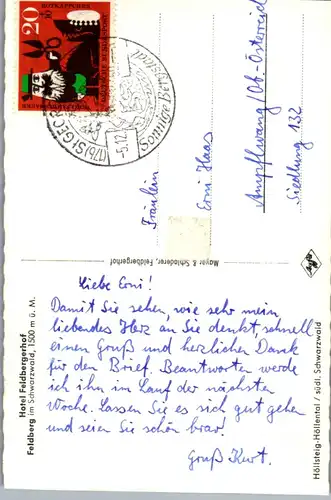 Hotel Feldbergerhof
Feldberg im Schwarzwald, 1500 m ü. M.
Liebe Erni!
Damit Sie sehen, wie sehr mein
liebendes Herz an Sie denkt, schnell
einen Gruß und herzlichen Dank
für den Brief. Beantworten werde
ich ihn im Lauf der nächsten
Woche. Lassen Sie es sich gut gehen
und seien Sie schön brav!
Gruß Kurt.
Höllsteig-Höllental / südl. Schwarzwald
Mayer & Schloderer, Feldbergerhof
Agfa
Fräulein
Erni Haas
Ampflwang/Ob.-Österreich
Siedlung 132
20
-5.12